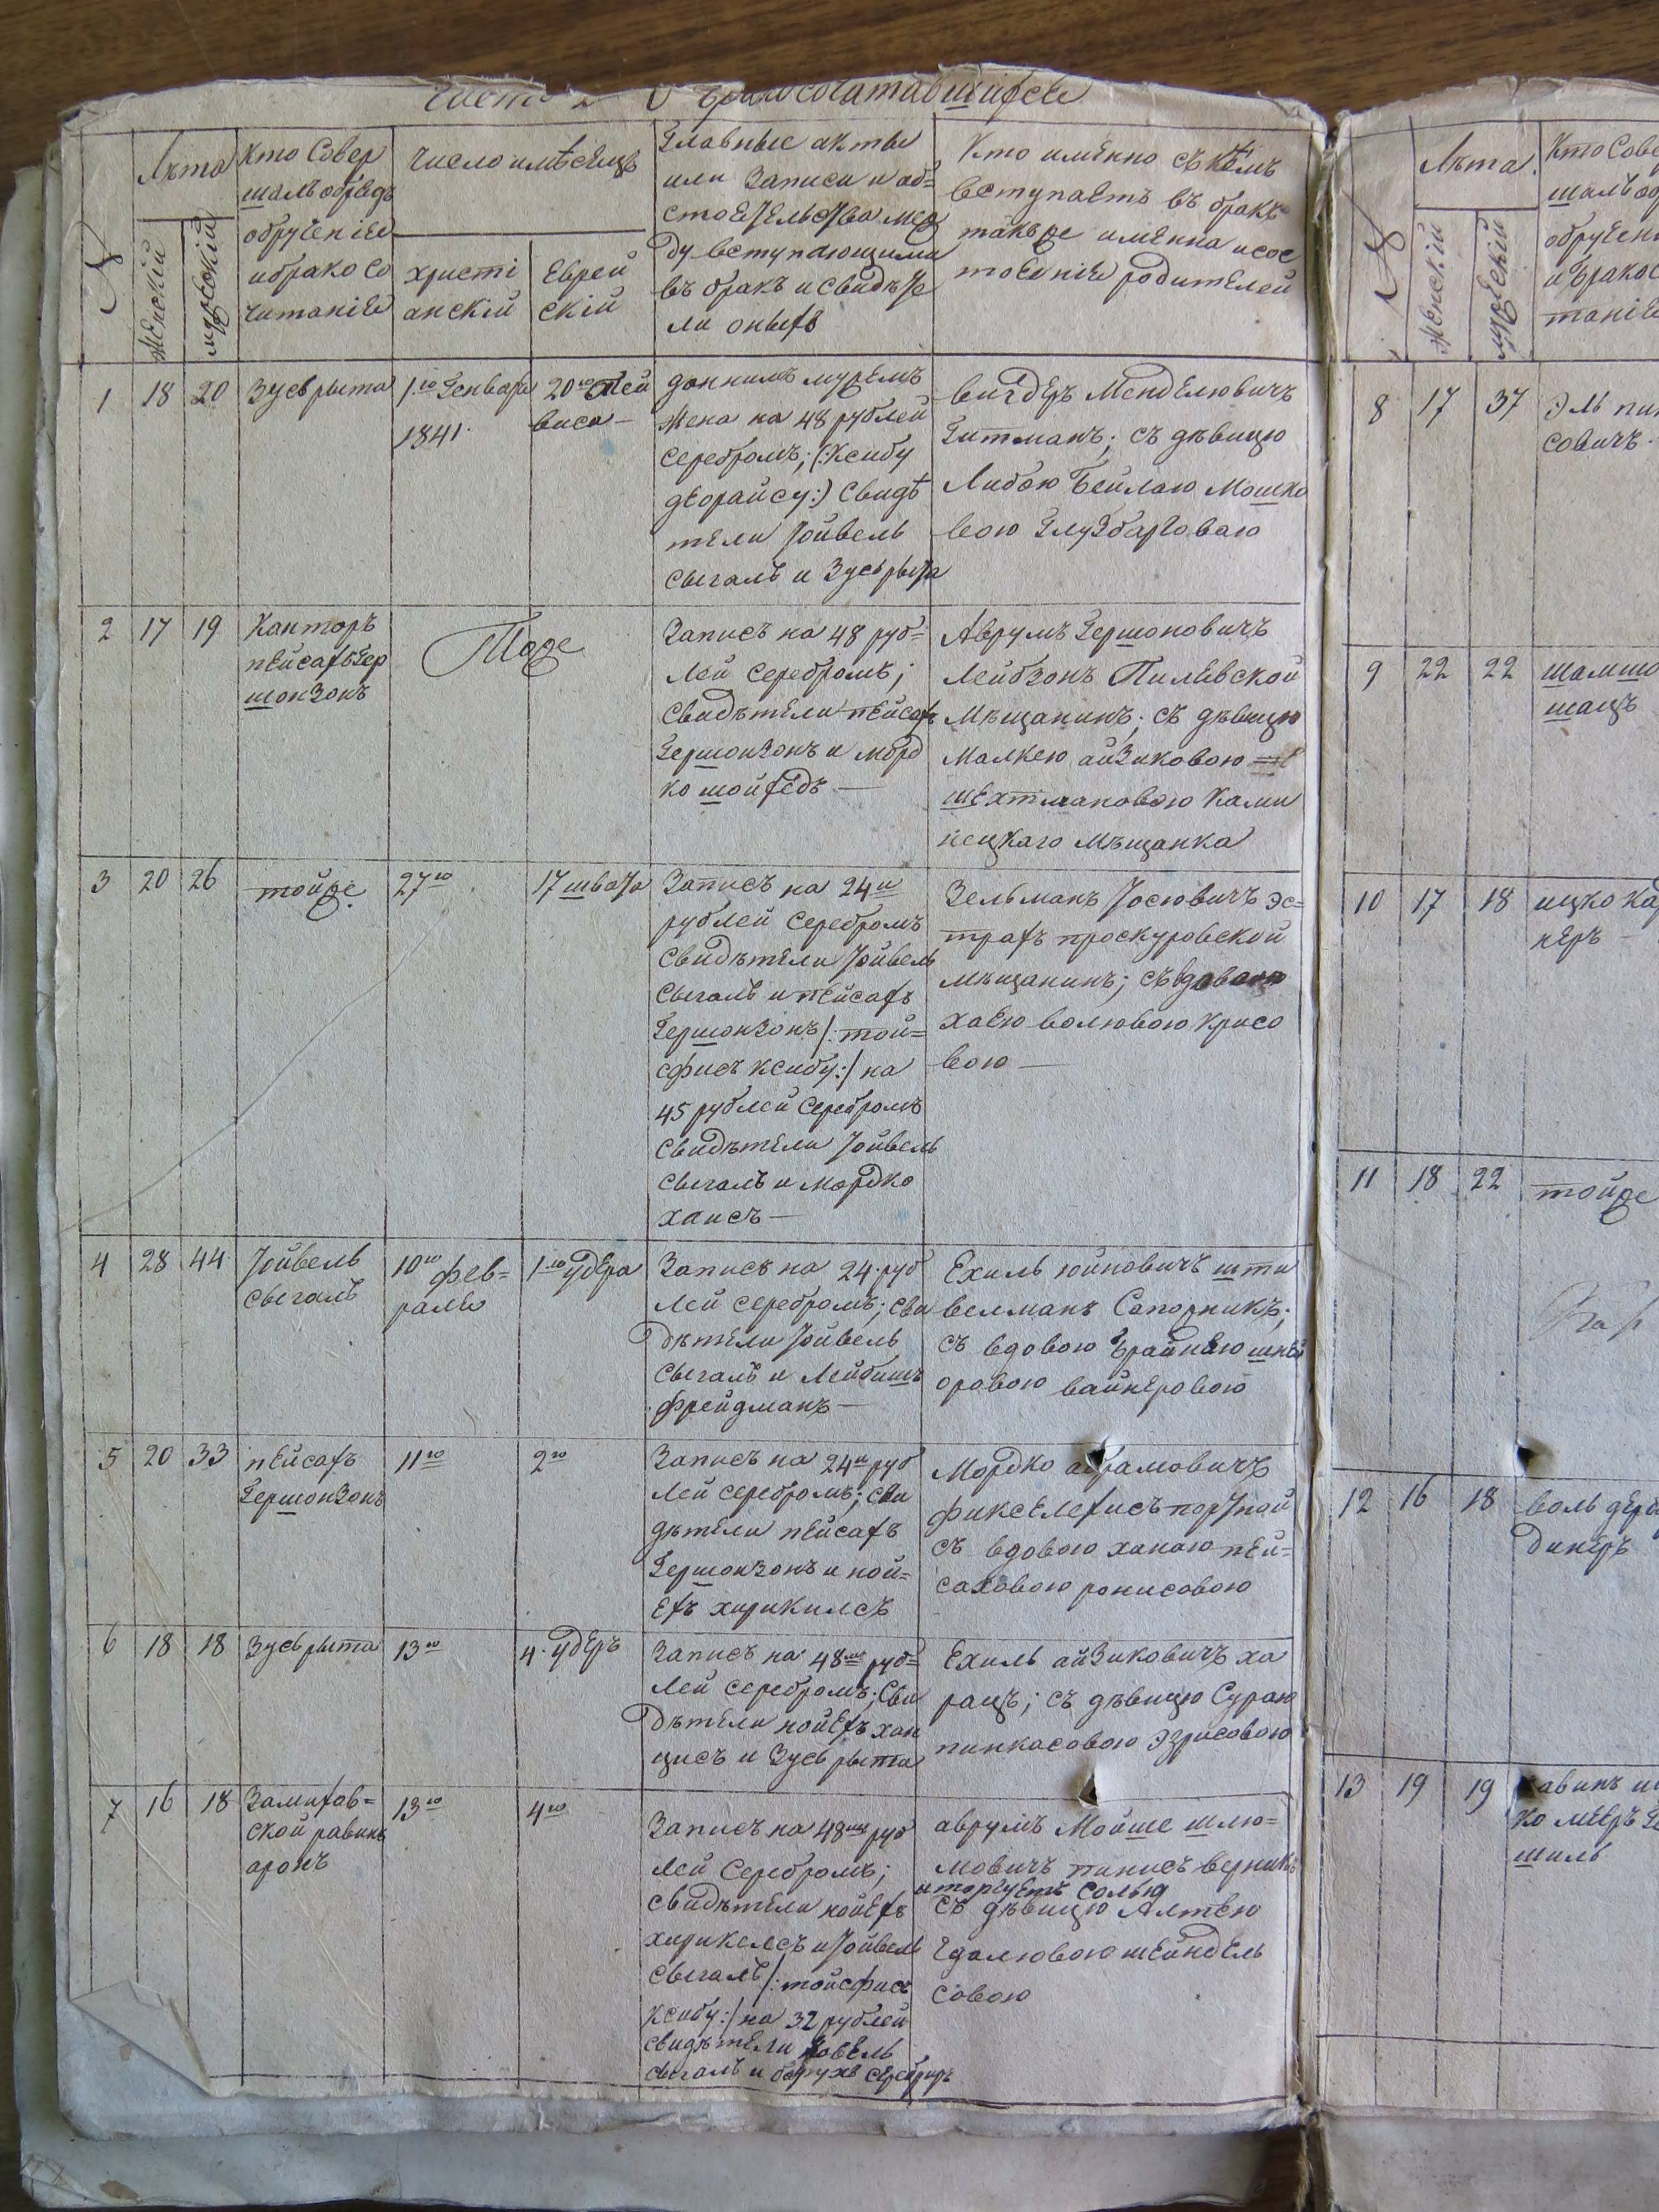 Часть 2 О бракосочетавшихся
№
Лѣта
Женскій
мужескій
Кто Совер
шалъ обрядъ
обрученія
и брако со
читанія
Число и мѣсяцъ
христі
анскій
Еврей
скій
Главные акты
или Записи и об=
стоятельства меж
ду вступающими
въ бракъ и свидѣте
ли оныхъ
Кто имянно съ кемъ
вступаетъ въ бракъ
такъже имянна и сос
тоянія родителей
1
18
20
Зусь рыта
1го Генваря
1841.
20го Тей
виса —
даннимъ мужемъ
Жена на 48 рублей
серебромъ; (:Ксибу
деорайсу:) Свидѣ
тели Іойвель
Сыгалъ и Зусь рыта
Вигдеръ Менделювичъ
Гитманъ; съ дѣвицю
Либою Бейлаю Мошко
вою
2
17
19
Канторъ
пейсахъ Гер
шонзонъ
Тоже
Записъ на 48 руб=
лей серебромъ;
Свидѣтели пейсахъ
Гершонзонъ и морд
ко шойхедъ —
Аврумъ Гершоновичъ
Лейбзонъ
Мѣщанинъ; съ дѣвицю
Малкею айзиковою
шехтмановою Ками
нецкаго Мѣщанка
3
20
26
тойже
27го
17 швата
Записъ на 24и
рублей серебромъ
Свидѣтели Іойвель
Сыгалъ и пейсахъ
Гершонзонъ /: той=
сфисъ ксибу:/ на
45 рублей серебромъ
Свидѣтели Іойвель
Сыгалъ и мордко
хаисъ —
Зельманъ Іосювичъ эс=
трахъ проскуровской
мѣщанинъ; съ вдовою
хаею волювою крисо
вою —
4
28
44
Іойвель
Сыгалъ
10го фев=
раля
1го удера
Записъ на 24 руб
лей серебромъ; сви
дѣтели Іойвель
Сыгалъ и Лейбишъ
фрейдманъ —
Ехиль юйновичъ шти
велманъ Сапожникъ;
съ вдовою Брайнею шнѣ
оровою вайнеровою
5
20
33
пейсахъ
Гершонзонъ
11го
2го
Записъ на 24и руб
лей серебромъ; сви
дѣтели пейсахъ
Гершонзонъ и ной=
ехъ хирикилсъ
Мордко абрамовичъ
портной
съ вдовою ханаю пей=
саховою ронисовою
6
18
18
Зусь рыта
13го
4. удеръ
Записъ на 48ми руб=
лей серебромъ; Сви
дѣтели нойехъ хан
цисъ и Зусь рыта
Ехиль айзиковичъ ха
рацъ; съ дѣвицю Сураю
пинкасовою эзрисовою
7
16
18
Замихов=
ской равинъ
аронъ
13го
4го
Записъ на 48ми руб
лей серебромъ;
свидѣтели нойехъ
хирикелсъ и Іойвель
Сыгалъ /: тойсфисъ
ксибу:/ на 32 рублей
свидѣтели Іовель
сыгалъ и борухъ
аврумъ Мойше шлю=
мовичъ пинисъ
и торгуетъ солью
съ дѣвицю Алтею
Гдалювою шейндель
совою
№
Лѣта.
Женскій
мужескій
Кто Сове
шалъ об
обручен
и бракос
таніе
8
17
37
Эль пин
совичъ.
9
22
22
шамшо
шацъ
10
17
18
ицко ка
неръ —
11
18
22
тойже
12
16
18
воль
динеръ
13
19
19
равинъ
ко мееръ
шиль